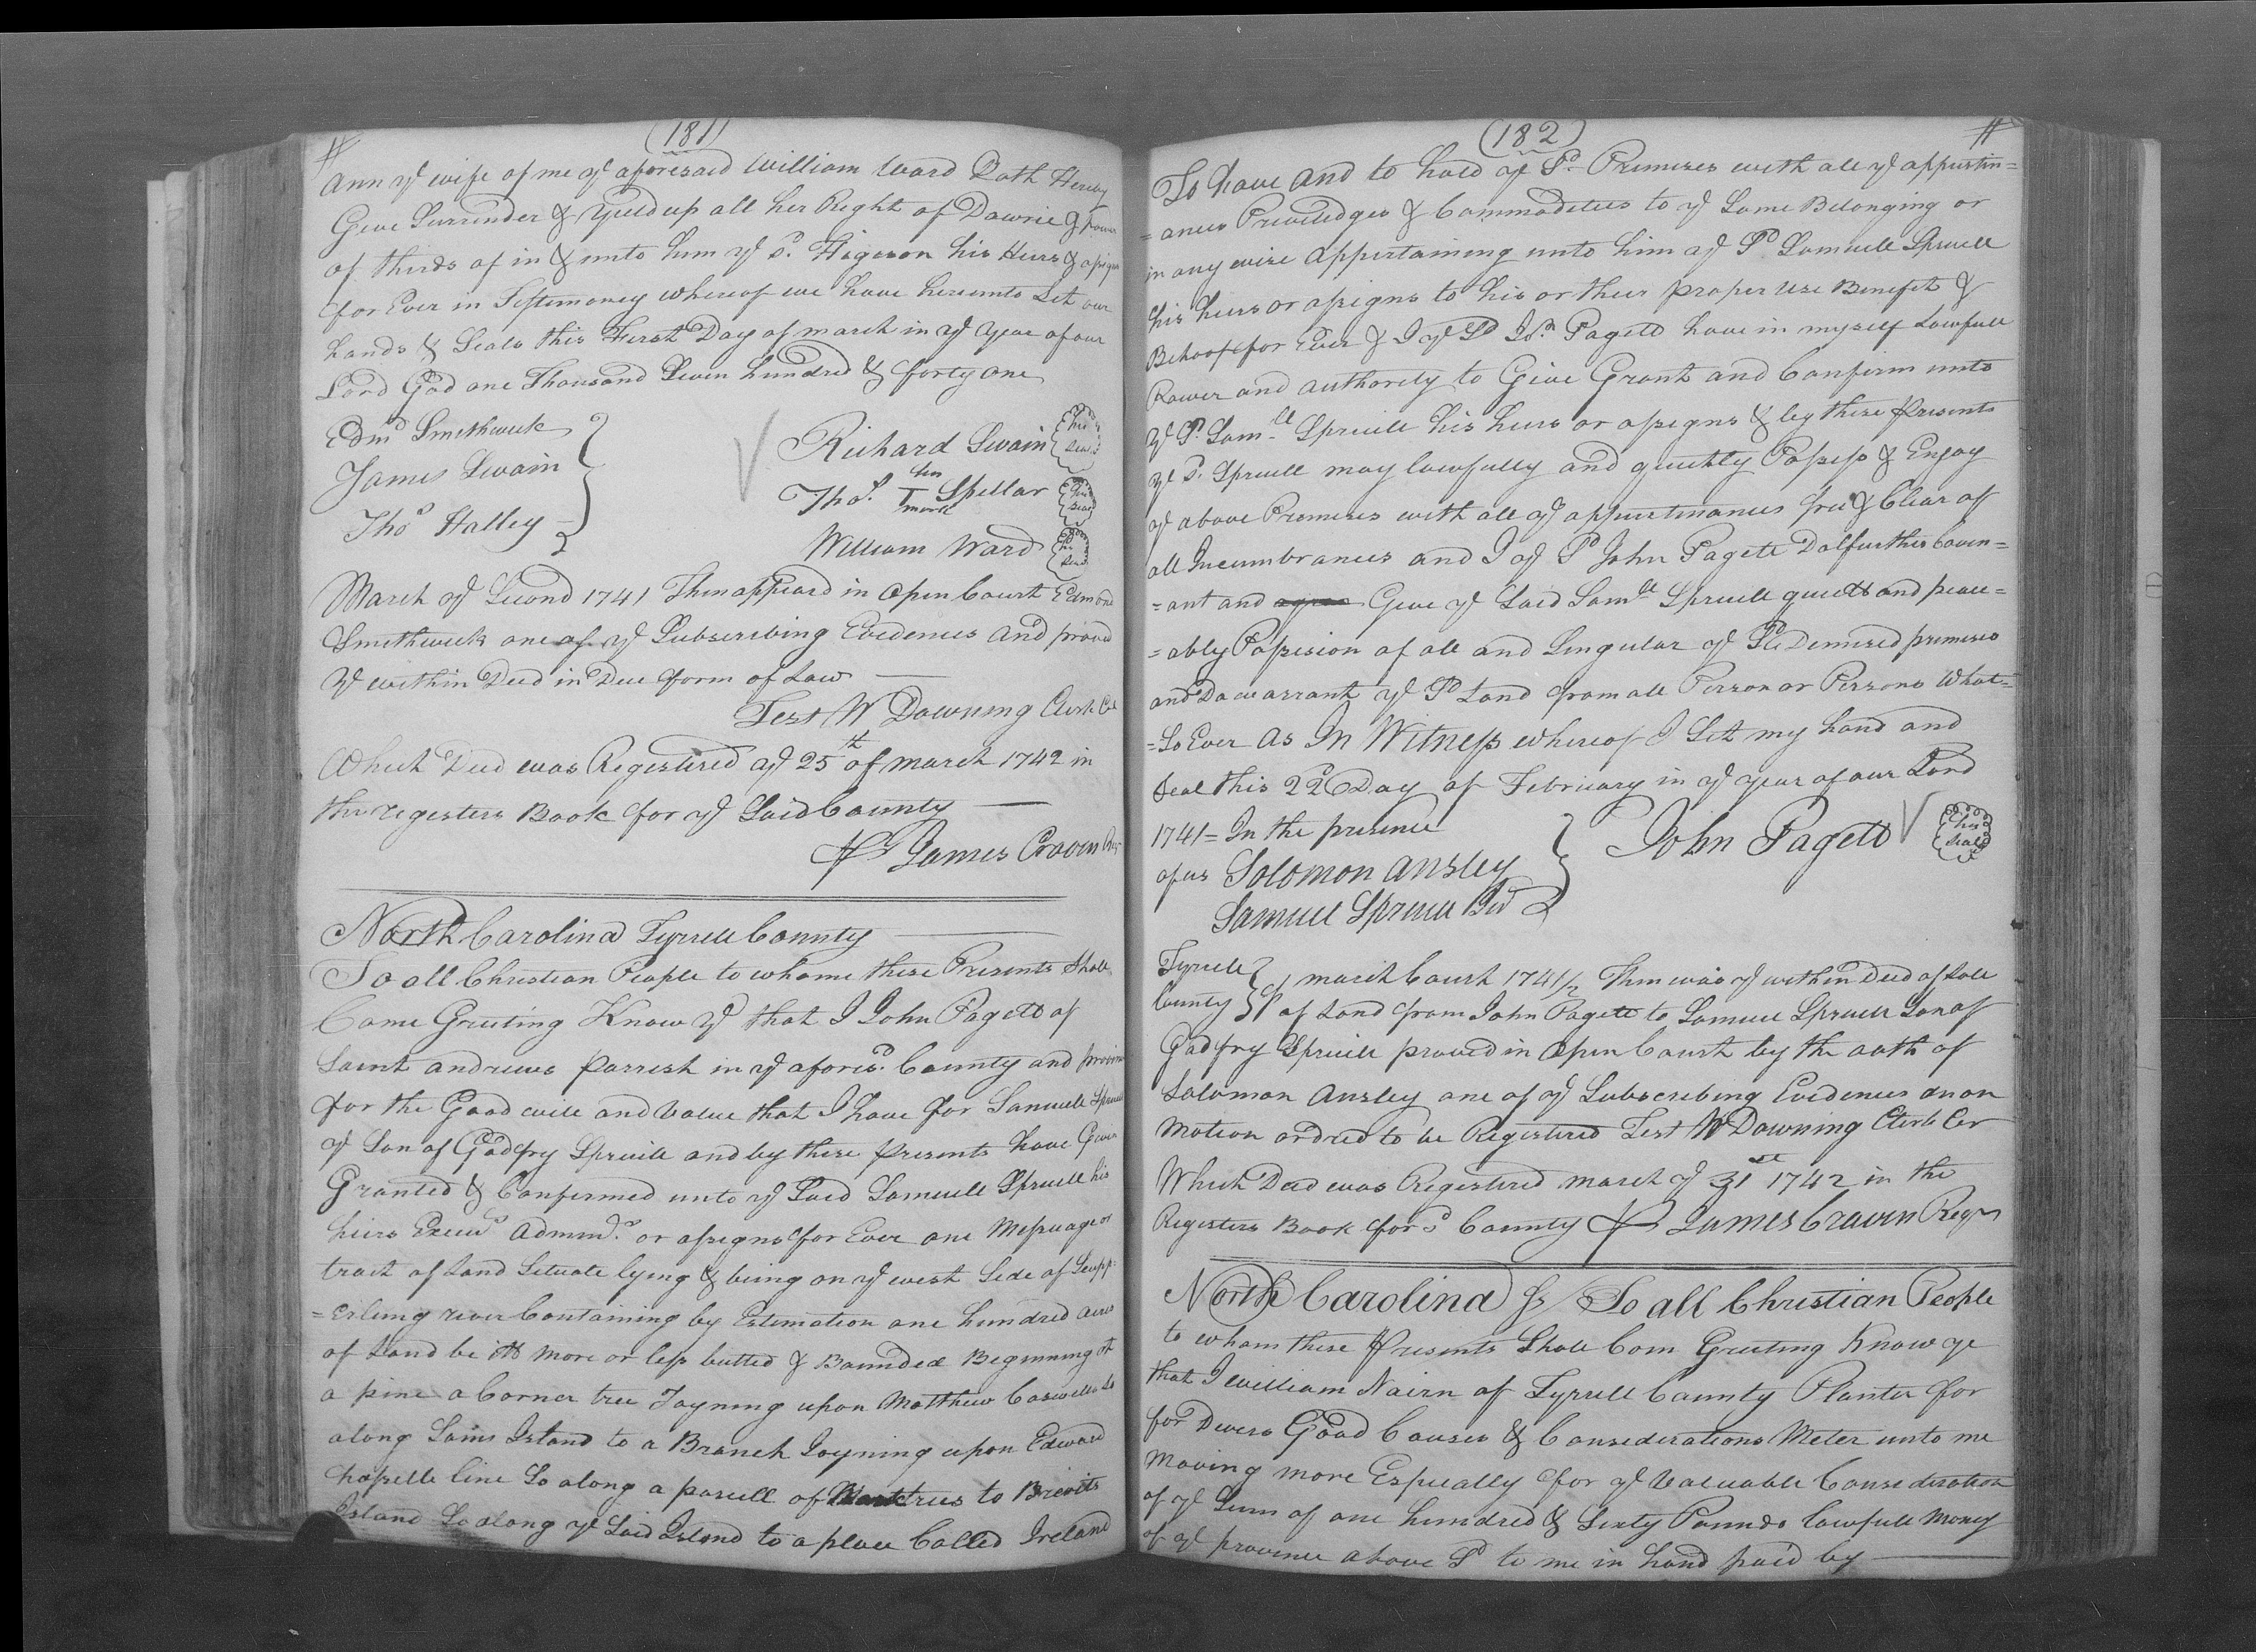 (181)
Ann ye wife of me ye aforesaid William Ward Doth Hereby
Give Surrender & Yield up all her Right of Dowrie & Power
of thirds of in & unto him ye Sd. Higeson his Heirs & assigns
for Ever in Testimoney whereof we have hereunto Set our
hands & Seals this First Day of march in ye Year of our
Lord God one Thousand Seven hundred & forty one
Edmd Smithwick
James Swain
Thos Halley
Richard Swain his Seal
Thos. his T mark Spellar his Seal
William Ward his Seal
March ye Second 1741 Then appeard in open Court Edmond
Smithwick one of ye Subscribing Evidences and proved
ye within Deed in Due form of Law
Test W Downing Clerk Cur
Which Deed was Registered ye 25th of march 1742 in
the registers Book for ye Said County
Pr James Craven Regr
North Carolina Tyrrell County
To all Christian People to whome these Presents Shall
Come Greeting Know ye that I John Pagett of
Saint andrews Parrish in ye aforesd. County and province
for the Good will and Value that I have for Samuell Spruell
ye Son of Godfry Spruill and by these presents have Given
Granted & Confirmed unto ye Said Samuell Spruell his
heirs Execurs Admmrs. or assigns for Ever one Messuage or
tract of Land Situate lying & being on ye west Side of Scupp-
=erlung river Containing by Estimation one hundred acres
of Land be itt more or less butted & Bounded Beginning at
a pine a Corner tree Joyning upon Matthew Caswells So
along Sams Island to a Branch Joyning upon Edward
Chapelle line So along a parcell of Markt trees to Brevits
Island So along ye Said Island to a place Called Ireland
(182)
To have and to hold ye Sd. Premises with all ye appurtin=
=ances Priviledges & Commodeties to ye Same Belonging or
in any wise Appertaining unto him ye Sd Samuell Spruell
his heirs or assigns to his or their proper Use Benefit &
Behoofe for Ever & I ye Sd Jon. Pagett have in myself Lawfull
Power and authority to Give Grant and Confirm unto
ye Sd. Samll Spruill his heirs or assigns & by these Presents
ye Sd. Spruell may lawfully and quietly Possess & Enjoy
ye above Premises with all ye appurtinances free & Clear of
all Incumbrances and I ye Sd John Pagett Do further Coven=
=ant and agree Give ye Said Samll Spruell quiett and peace=
=ably Possesion of all and Singular ye Sd Demised premises
and Do warrant ye Sd Land from all Person or Persons What=
=So Ever As In Witness whereof I Set my hand and
Seal this 22d Day of February in ye year of our Lord
1741= In the presence
of us Solomon Ansley
Samuel Spruell
John Pagett his Seal
Tyrrell County march Court 1741/2 Then was ye within Deed of Sale
of Land from John Pagett to Samuel Spruell Son of
Godfry Spruill proved in Open Court by the oath of
Solomon Ansley one of ye Subscribing Evidences on on
Motion ordred to be Registered Test W Downing Clerk Cur
Which Deed was Registered march ye 31st 1742 in the
Registers Book for sd County Pr James Craven Regr
North Carolina Ss To all Christian People
to whom these Presents Shall Com Greeting Know ye
that I William Nairn of Tyrrell County Planter for
for Divers Good Causes & Considerations Meter unto me
Moving more Espeially for ye Valuable Consideration
of ye Sum of one hundred & Sixty Pounds lawfull Money
of ye province above Sd to me in hand paid by